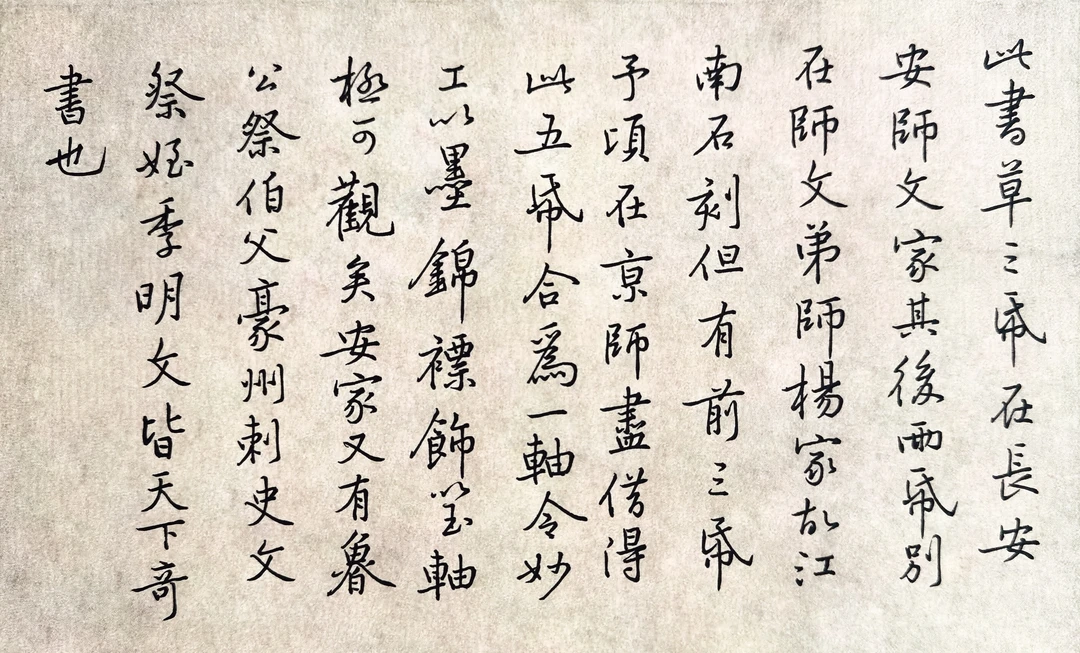 此書草三帋在長安
安師文家其後兩帋別
在師文弟師楊家故江
南石刻但有前三帋
予頃在京師盡借得
此五帋合爲一軸令妙
工以墨錦褾飾以玉軸
極可觀矣安家又有魯
公祭伯父豪州刺史文
祭姪季明文皆天下奇
書也